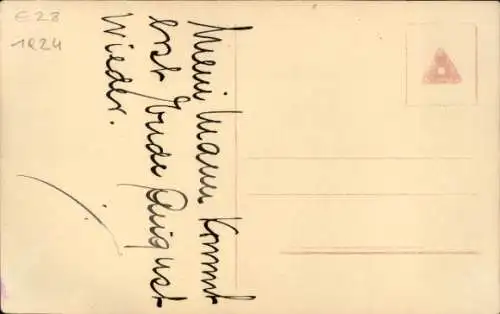 E 28
1924
Mein Mann kommt
erst Ende August
wieder.